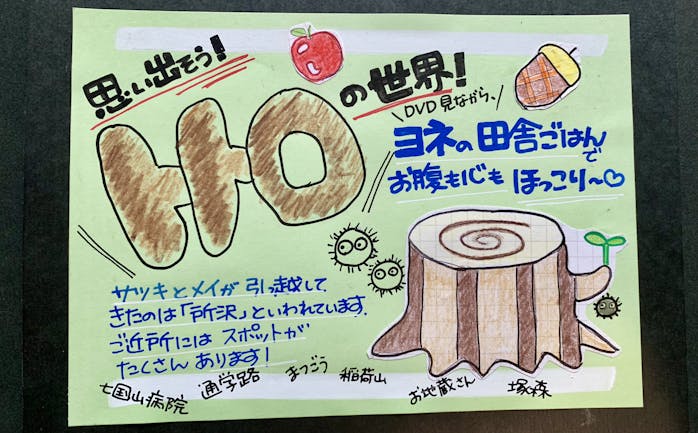 思い出そう!
トトロ
の世界!
DVD見ながら、
ヨネの田舎ごはんで
お腹も心も ほっこり〜♡
サツキとメイが引っ越して
きたのは「所沢」といわれています.
ご近所には スポットが
たくさん あります!
七国山病院 通学路 まつごう 稲荷山 お地蔵さん 塚森